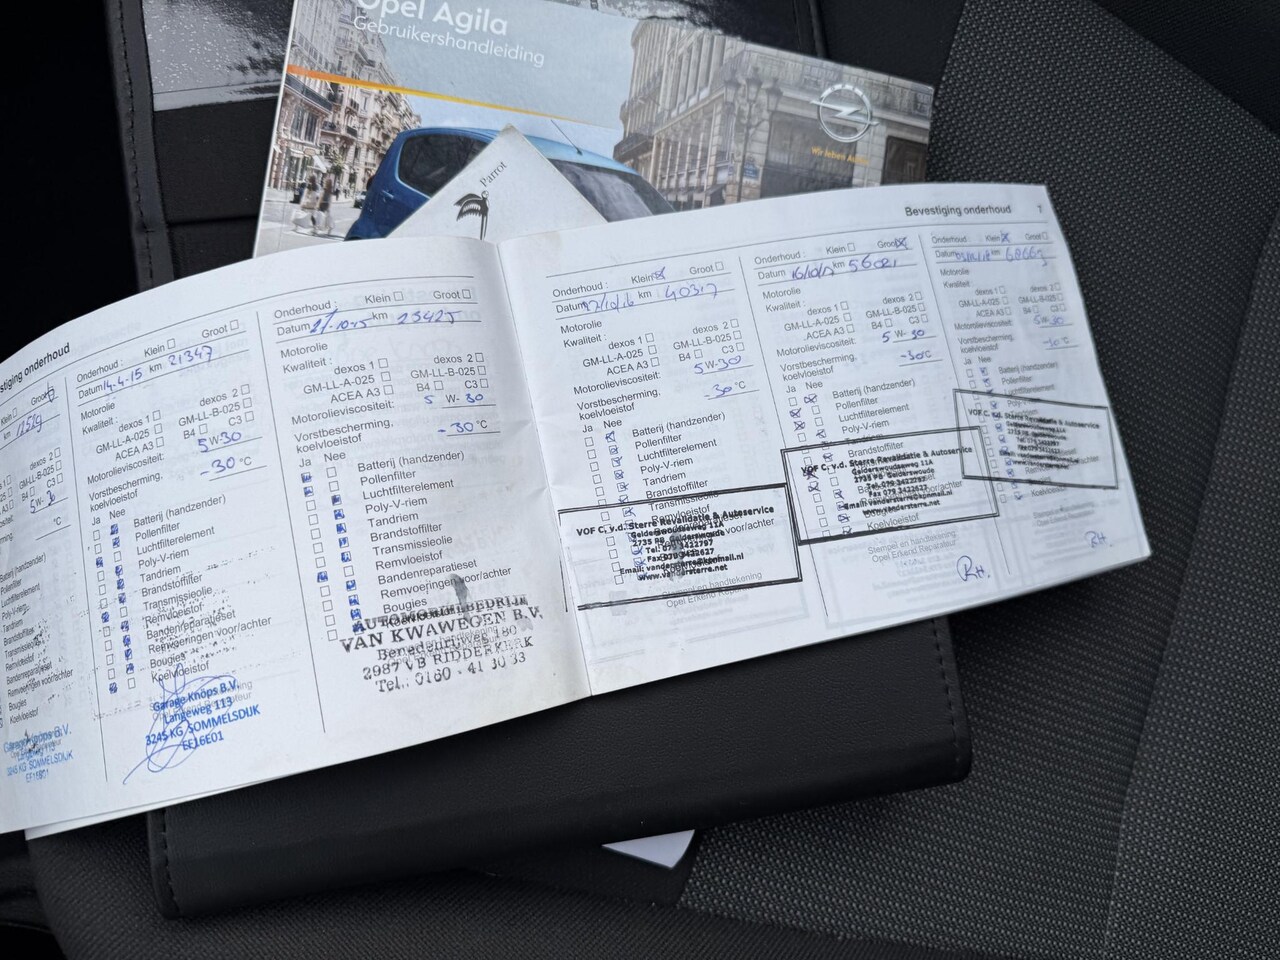 Opel Agila
Gebruikershandleiding
Wir leben Autos
Parrot
Bevestiging onderhoud 7
stiging onderhoud
Groot
km 15
dexos 2
GM-LL-B-025
C3
5 W-30
°C
Batterij (handzender)
Pollenfilter
Luchtfilterelement
Poly-V-riem
Tandriem
Brandstoffilter
Transmissieolie
Remvloeistof
Bandenreparatieset
Remvoeringen voor/achter
Bougies
Koelvloeistof
Garage Knöps B.V.
3245 KG SOMMELSDIJK
Onderhoud : Klein Groot
Datum 14-4-15 km 21347
Motorolie
Kwaliteit : dexos 1 dexos 2
GM-LL-A-025 GM-LL-B-025
ACEA A3 B4 C3
Motorolieviscositeit: 5 W-30
Vorstbescherming,
koelvloeistof -30 °C
Ja Nee
Batterij (handzender)
Pollenfilter
Luchtfilterelement
Poly-V-riem
Tandriem
Brandstoffilter
Transmissieolie
Remvloeistof
Bandenreparatieset
Remvoeringen voor/achter
Bougies
Koelvloeistof
Garage Knöps B.V.
Langeweg 113
3245 KG SOMMELSDIJK
EE16E01
Onderhoud : Klein Groot
Datum 27-10-15 km 25425
Motorolie
Kwaliteit : dexos 1 dexos 2
GM-LL-A-025 GM-LL-B-025
ACEA A3 B4 C3
Motorolieviscositeit: 5 W-30
Vorstbescherming,
koelvloeistof -30 °C
Ja Nee
Batterij (handzender)
Pollenfilter
Luchtfilterelement
Poly-V-riem
Tandriem
Brandstoffilter
Transmissieolie
Remvloeistof
Bandenreparatieset
Remvoeringen voor/achter
Bougies
AUTOMOBIELBEDRIJF
VAN KWAWEGEN B.V.
Benedenrijweg 80
2987 VB RIDDERKERK
Tel.: 0180 - 41 30 33
Onderhoud : Klein Groot
Datum /10/16 km 40317
Motorolie
Kwaliteit : dexos 1 dexos 2
GM-LL-A-025 GM-LL-B-025
ACEA A3 B4 C3
Motorolieviscositeit: 5 W-30
Vorstbescherming,
koelvloeistof -30 °C
Ja Nee
Batterij (handzender)
Pollenfilter
Luchtfilterelement
Poly-V-riem
Tandriem
Brandstoffilter
Transmissieolie
VOF C. v.d. Sterre Revalidatie & Autoservice
Gelderswoudseweg 11A
2735 PB Gelderswoude
Tel: 079 3422797
Fax 079 3422627
Email: vandersterre@kpnmail.nl
www.vandersterre.net
Stempel en handtekening
Opel Erkend Reparateur
Onderhoud : Klein Groot
Datum 16/10/17 km 56021
Motorolie
Kwaliteit : dexos 1 dexos 2
GM-LL-A-025 GM-LL-B-025
ACEA A3 B4 C3
Motorolieviscositeit: 5 W-30
Vorstbescherming,
koelvloeistof -30 °C
Ja Nee
Batterij (handzender)
Pollenfilter
Luchtfilterelement
Poly-V-riem
Tandriem
Brandstoffilter
VOF C. v.d. Sterre Revalidatie & Autoservice
Gelderswoudseweg 11A
2735 PB Gelderswoude
Tel. 079 3422797
Fax 079 3422627
Email: vandersterre@kpnmail.nl
www.vandersterre.net
Koelvloeistof
Stempel en handtekening
Opel Erkend Reparateur
RH.
Onderhoud : Klein Groot
Datum km
Motorolie
Kwaliteit : dexos 1 dexos 2
GM-LL-A-025 GM-LL-B-025
ACEA A3 B4 C3
Motorolieviscositeit: 5 W-30
Vorstbescherming,
koelvloeistof -30 °C
Ja Nee
Batterij (handzender)
Pollenfilter
Luchtfilterelement
VOF C. v.d. Sterre Revalidatie & Autoservice
RH.